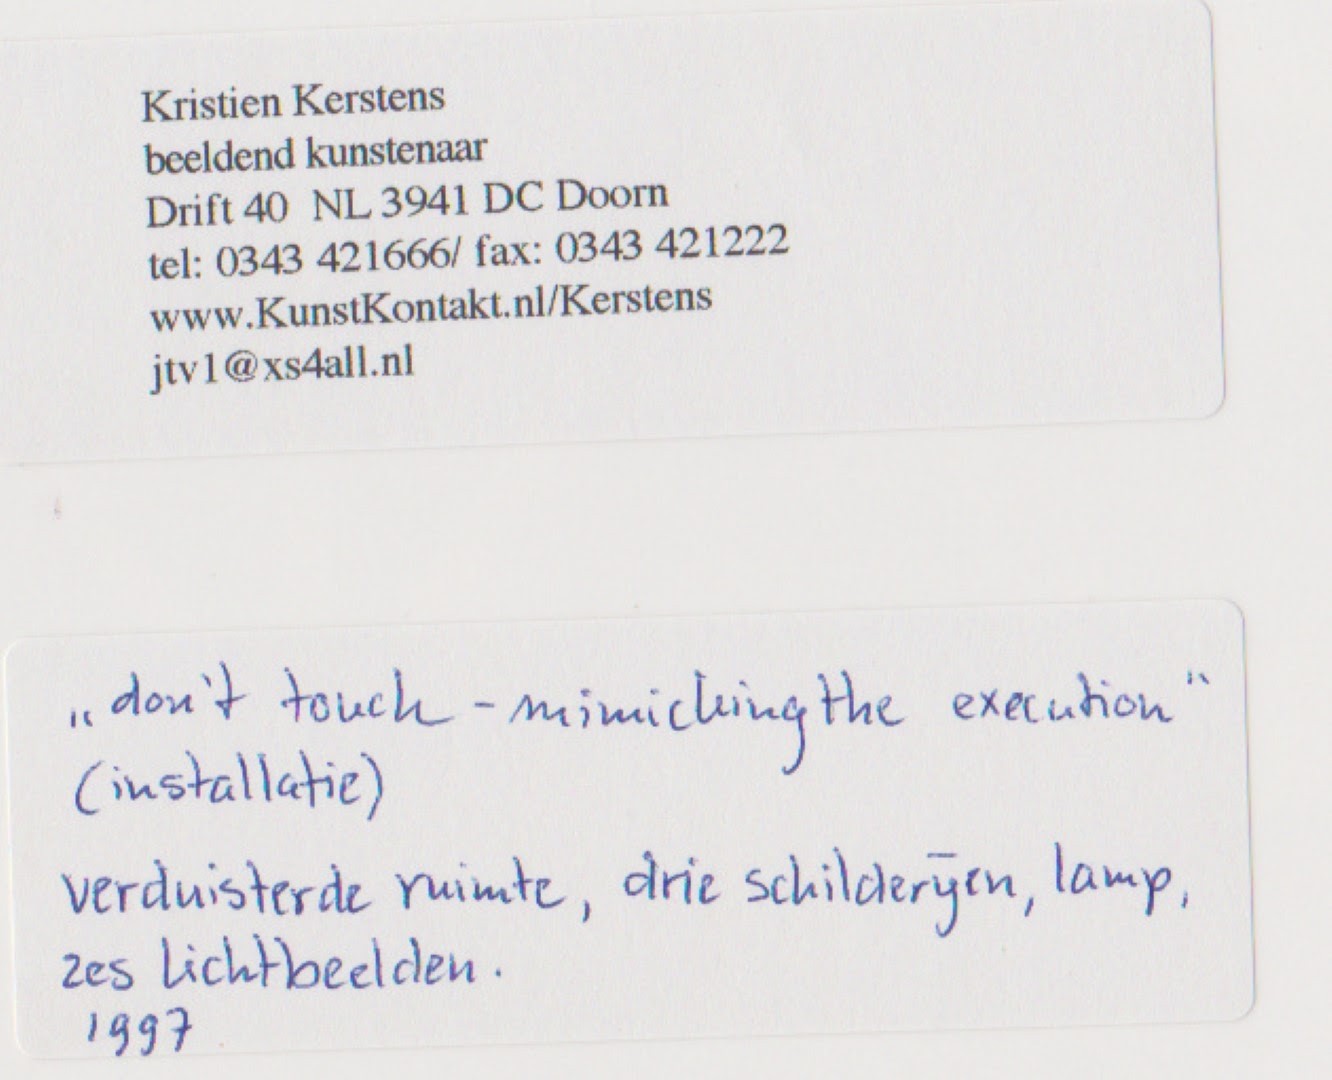 Kristien Kerstens
beeldend kunstenaar
Drift 40 NL 3941 DC Doorn
tel: 0343 421666/ fax: 0343 421222
www.KunstKontakt.nl/Kerstens
jtv1@xs4all.nl
„don't touch - mimicking the execution"
(installatie)
verduisterde ruimte, drie schilderijen, lamp,
zes lichtbeelden.
1997